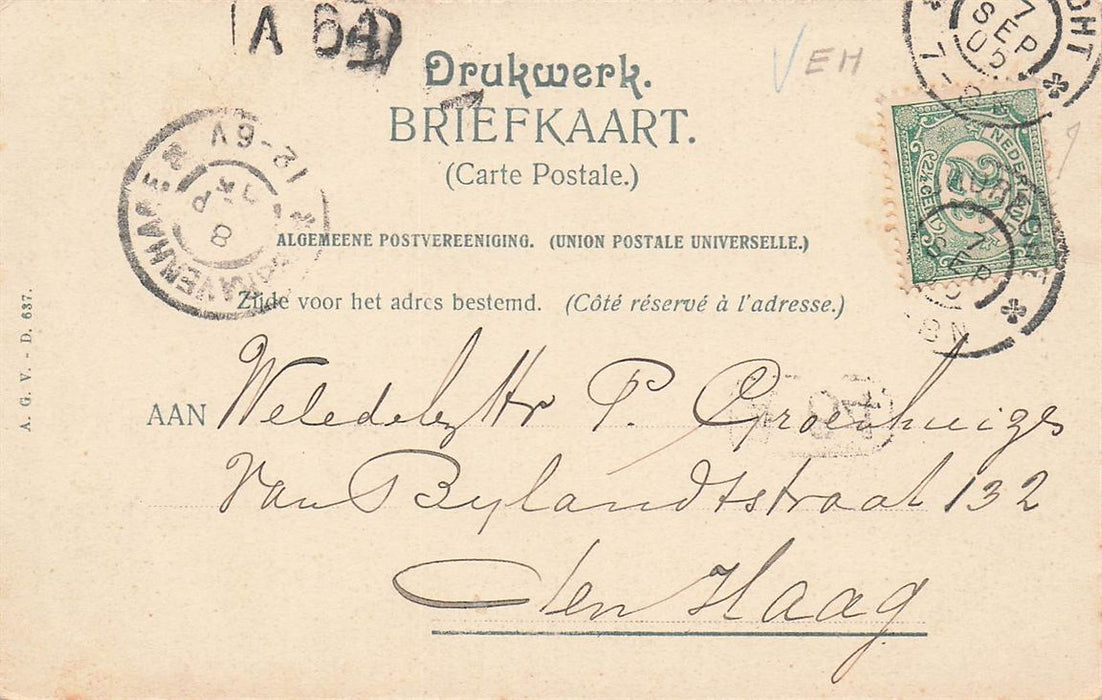 A 64
VEH
Drukwerk.
BRIEFKAART.
(Carte Postale.)
7 SEP
NEDERLAND
2½ CENT
7 SEP
8 N
12-6V
8
ALGEMEENE POSTVEREENIGING. (UNION POSTALE UNIVERSELLE.)
Zijde voor het adres bestemd. (Côté réservé à l'adresse.)
A. G. V. - D. 637.
AAN Weledelg Hr P. Groenhuizs
Van Bylandtstraat 132
den Haag